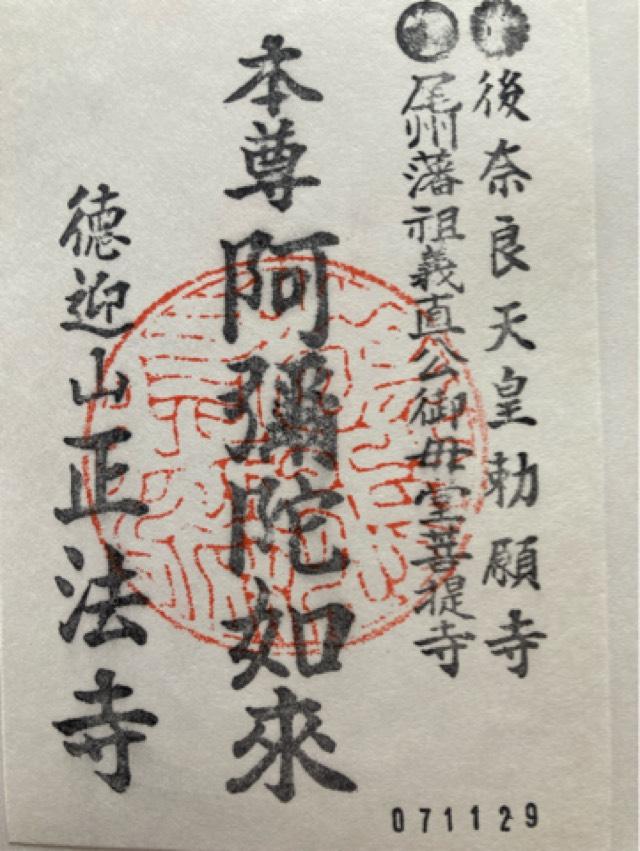 後奈良天皇勅願寺
尾州藩祖義直公御母堂菩提寺
本尊阿彌陀如來
德迎山正法寺
071129